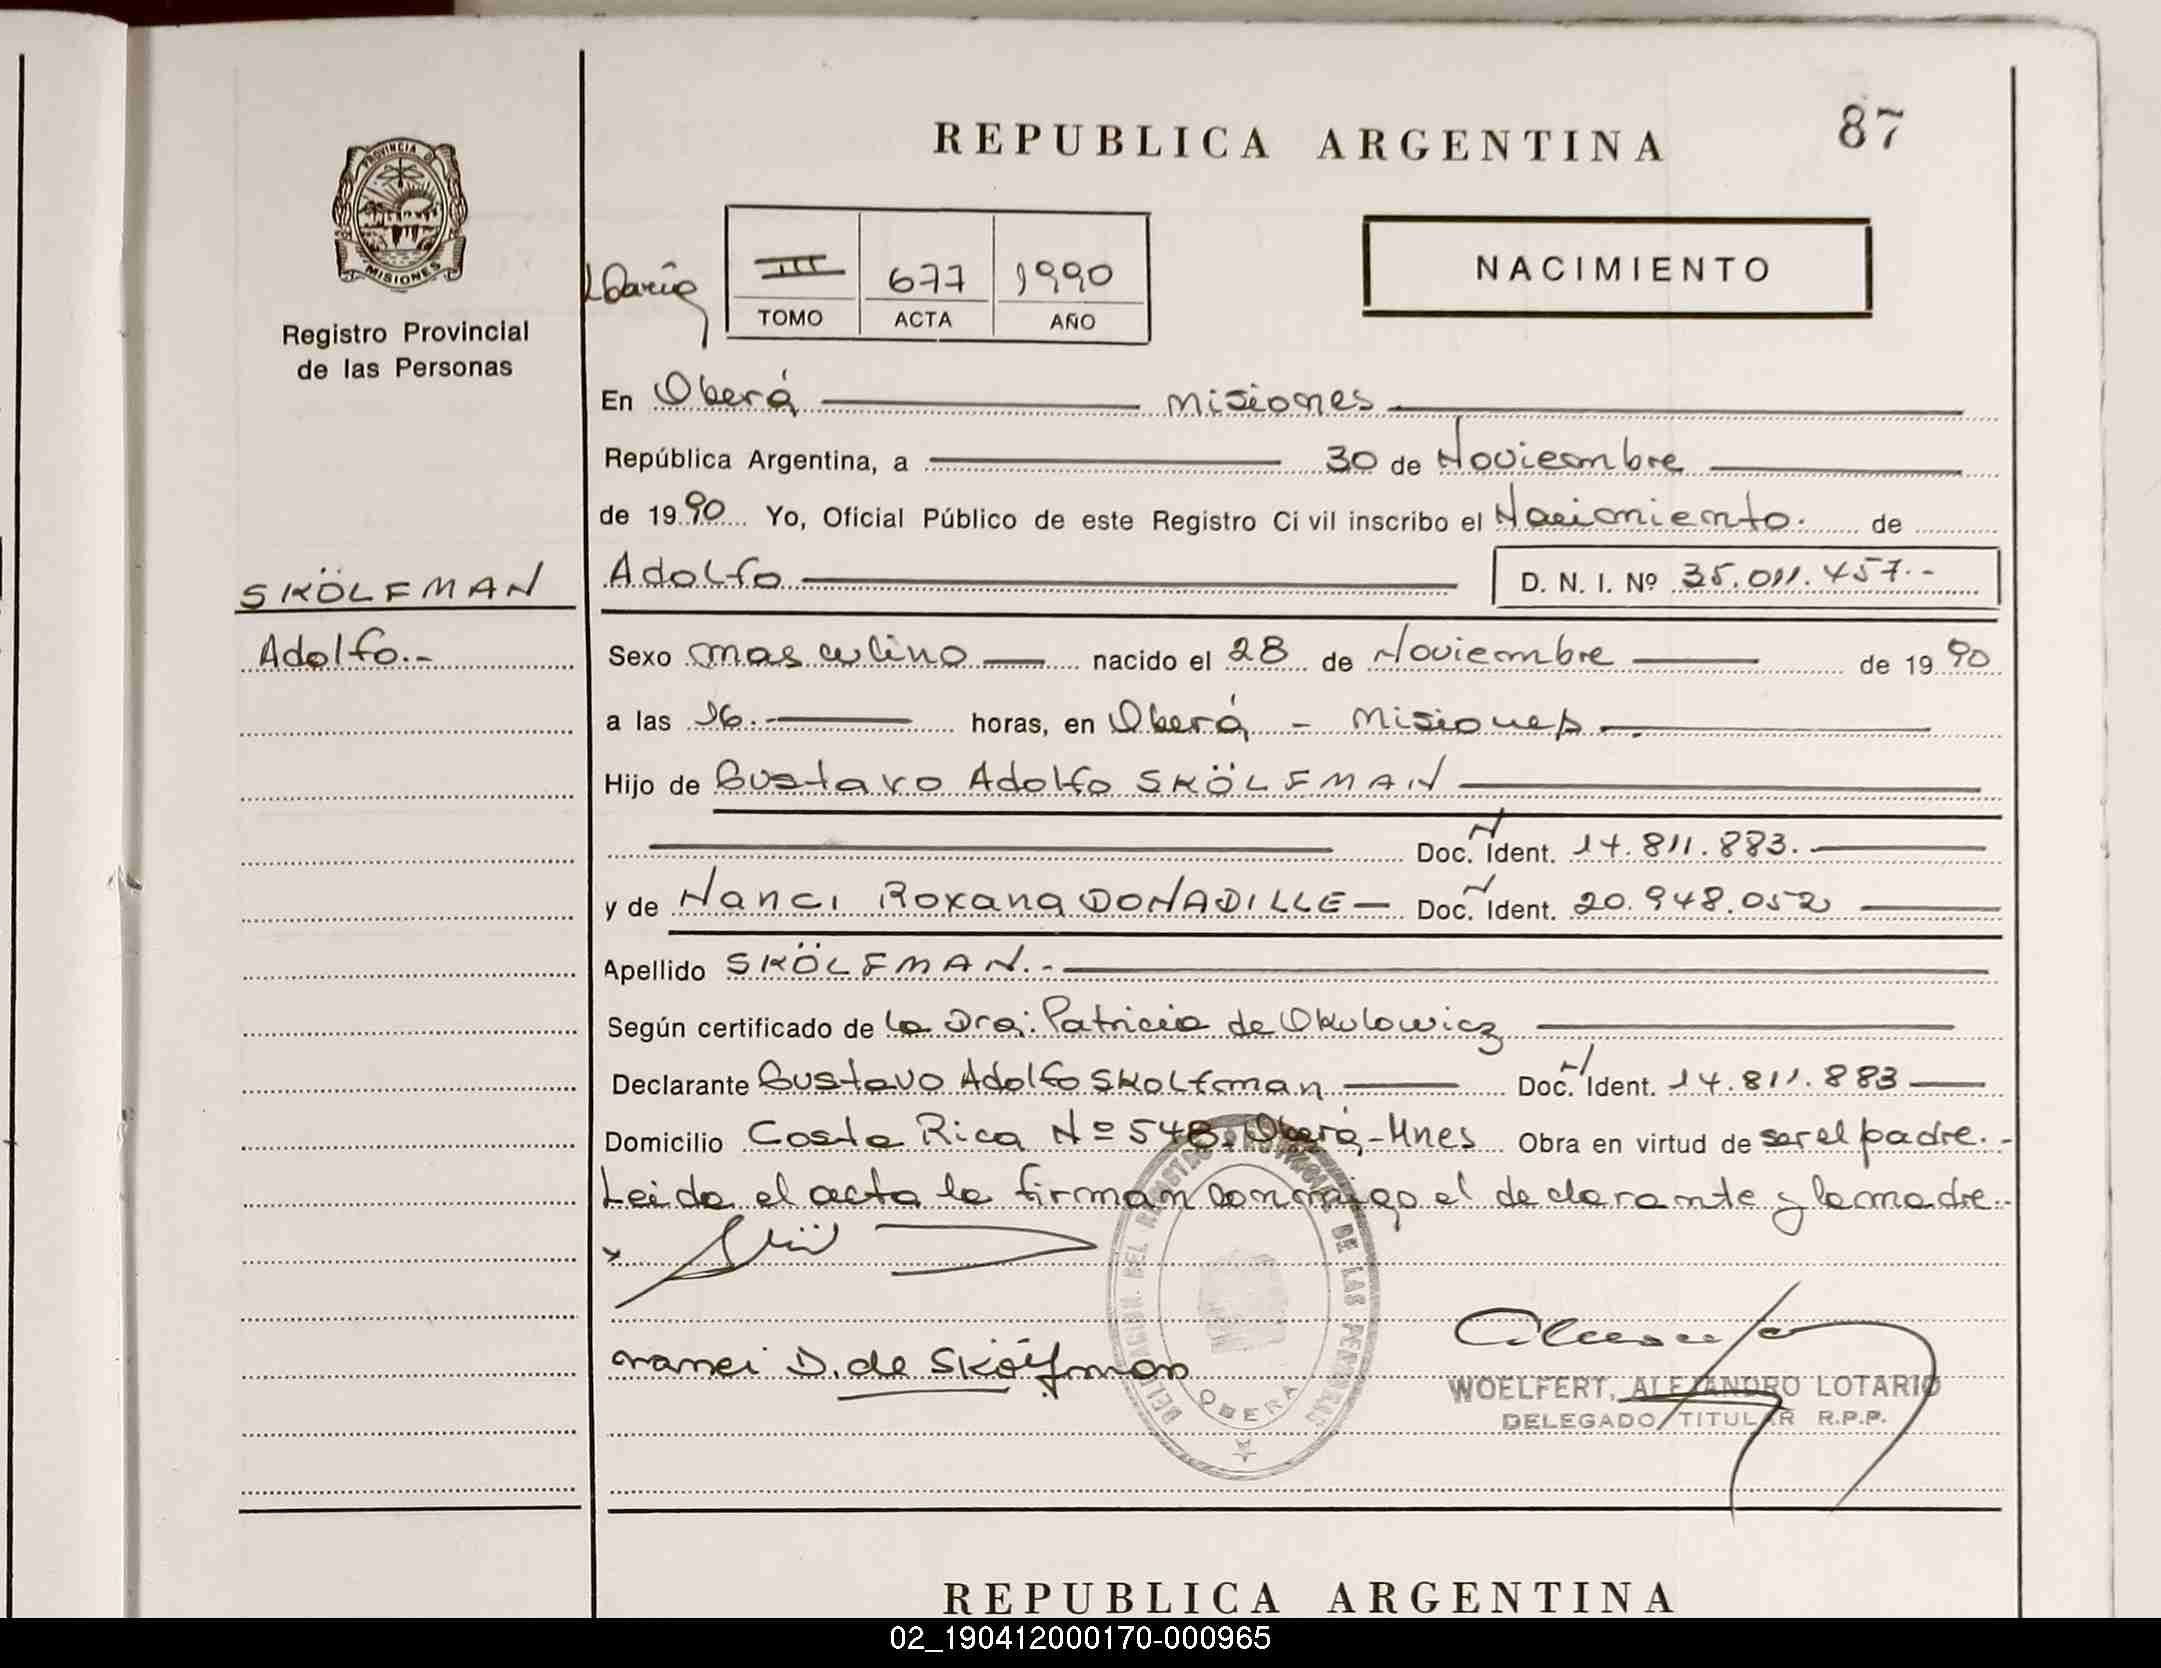 REPUBLICA ARGENTINA
87
PROVINCIA DE
MISIONES
Registro Provincial
de las Personas
III 677 1990
TOMO ACTA AÑO
NACIMIENTO
En Oberá misiones
República Argentina, a 30 de Noviembre
de 1990 Yo, Oficial Público de este Registro Ci vil inscribo el Nacimiento. de
Adolfo D. N. I. Nº 35.011.457.-
SKÖLFMAN
Adolfo.-
Sexo masculino nacido el 28 de Noviembre de 1990
a las 16.- horas, en Oberá - Misiones
Hijo de Gustavo Adolfo SKÖLFMAN
Doc. N Ident. 14.811.883.
y de Nanci Roxana DONADILLE Doc. N Ident. 20.948.052
Apellido SKÖLFMAN.-
Según certificado de la Dra: Patricia de Okulowicz
Declarante Gustavo Adolfo SKolfman Doc. N Ident. 14.811.883
Domicilio Costa Rica Nº 548. Oberá-Mnes Obra en virtud de ser el padre.-
Leida el acta la firman conmigo el declarante y la madre.-
DELEGACION DEL REGISTRO PROVINCIAL DE LAS PERSONAS
OBERA
nanci D. de Skölfman
WOELFERT, ALEJANDRO LOTARIO
DELEGADO TITULAR R.P.P.
REPUBLICA ARGENTINA
02_190412000170-000965